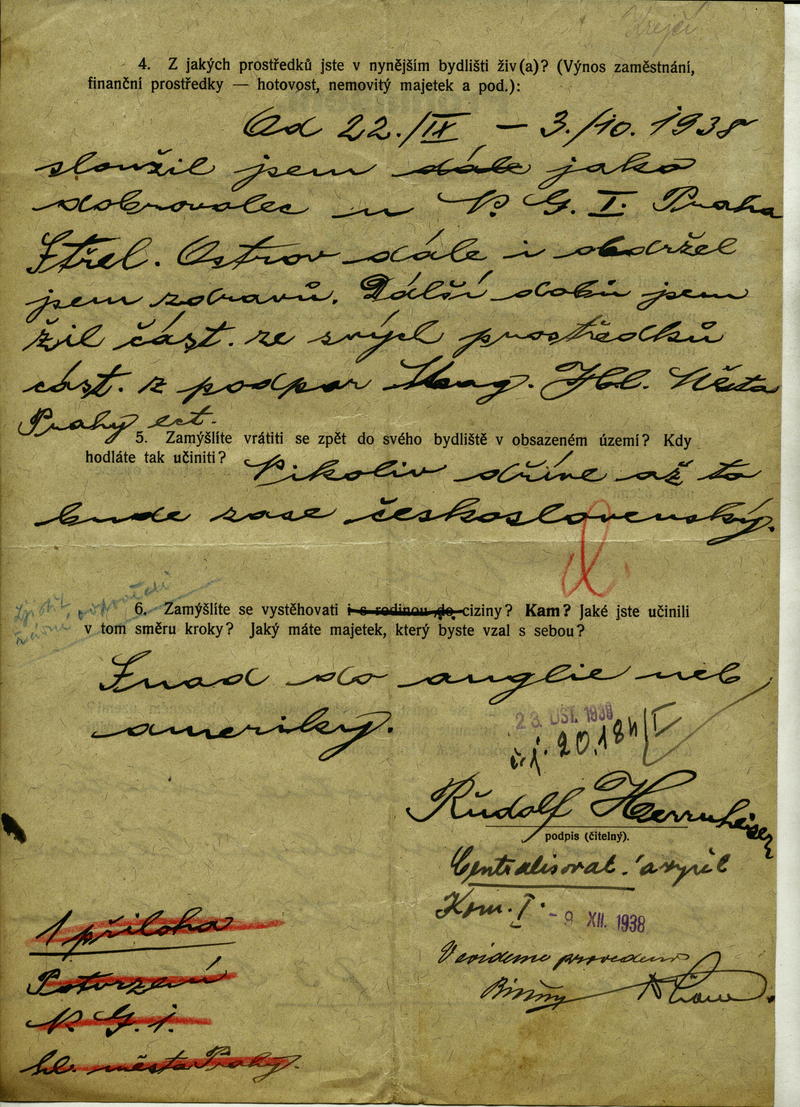 Krejčí
4. Z jakých prostředků jste v nynějším bydlišti živ(a)? (Výnos zaměstnání,
finanční prostředky — hotovost, nemovitý majetek a pod.):
Od 22./IX – 3./10. 1938
sloužil jem dále jako
dobrovolec u N. G. I. Praha
Střel. Ostrov dále i obdržel
jem zdravů. Další dobů jem
žil část. ze svých prostředků
část. z podpor Mag. Hl. Města
Prahy ect.
5. Zamýšlíte vrátiti se zpět do svého bydliště v obsazeném území? Kdy
hodláte tak učiniti?
Nikoliv dříve až to
bude zase československý.
Zjistit
6. Zamýšlíte se vystěhovati i s rodinou do ciziny? Kam? Jaké jste učinili
v tom směru kroky? Jaký máte majetek, který byste vzal s sebou?
Snad do anglie neb
ameriky.
23. LIST. 1938
čj. 20.184/I
Rudolf Herrnheiser
podpis (čitelný).
Centralisoval
Kom. I. - 9. XII. 1938
V evidenci provedeno
1 příloha
Potvrzení
N. G. 1.
hl. města Prahy.